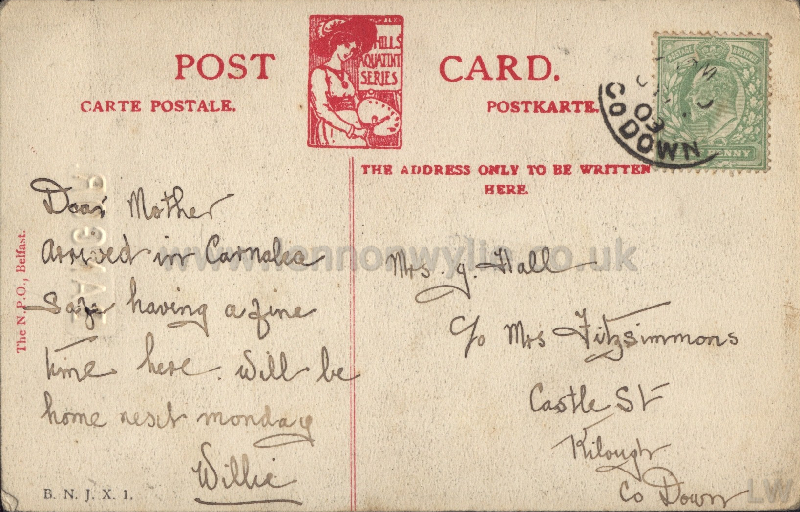 POST CARD.
HILLS
AQUATINT
SERIES
CARTE POSTALE.
POSTKARTE.
THE ADDRESS ONLY TO BE WRITTEN
HERE.
PENNY
03
Co DOWN
Dear Mother
arrived in Carnalea
safe having a fine
time here. Will be
home next monday
Willie
Mrs. J. Hall
c/o Mrs Fitzsimmons
Castle St
Kilough
Co Down
The N.P.O., Belfast.
B. N. J. X. 1.
www.lennonwylie.co.uk
LW